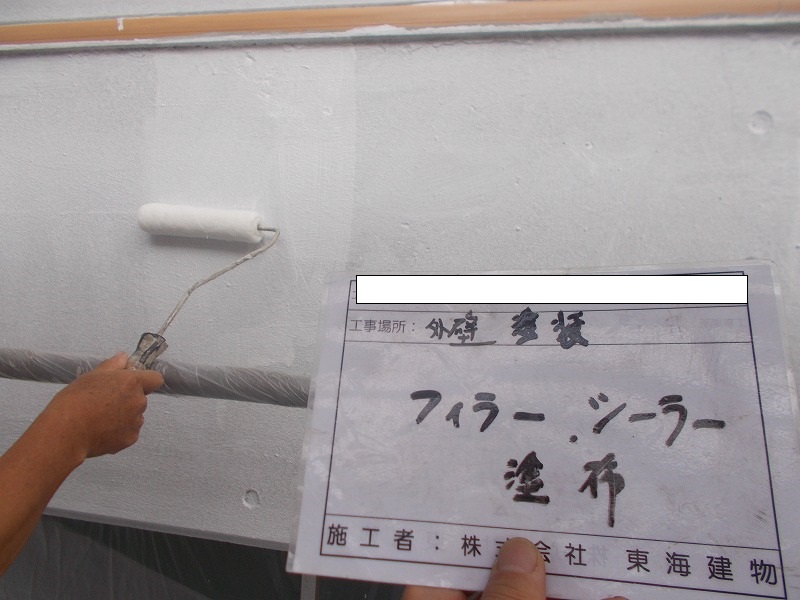 工事場所：外壁 塗装
フィラー．シーラー
塗布
施工者：株式会社 東海建物